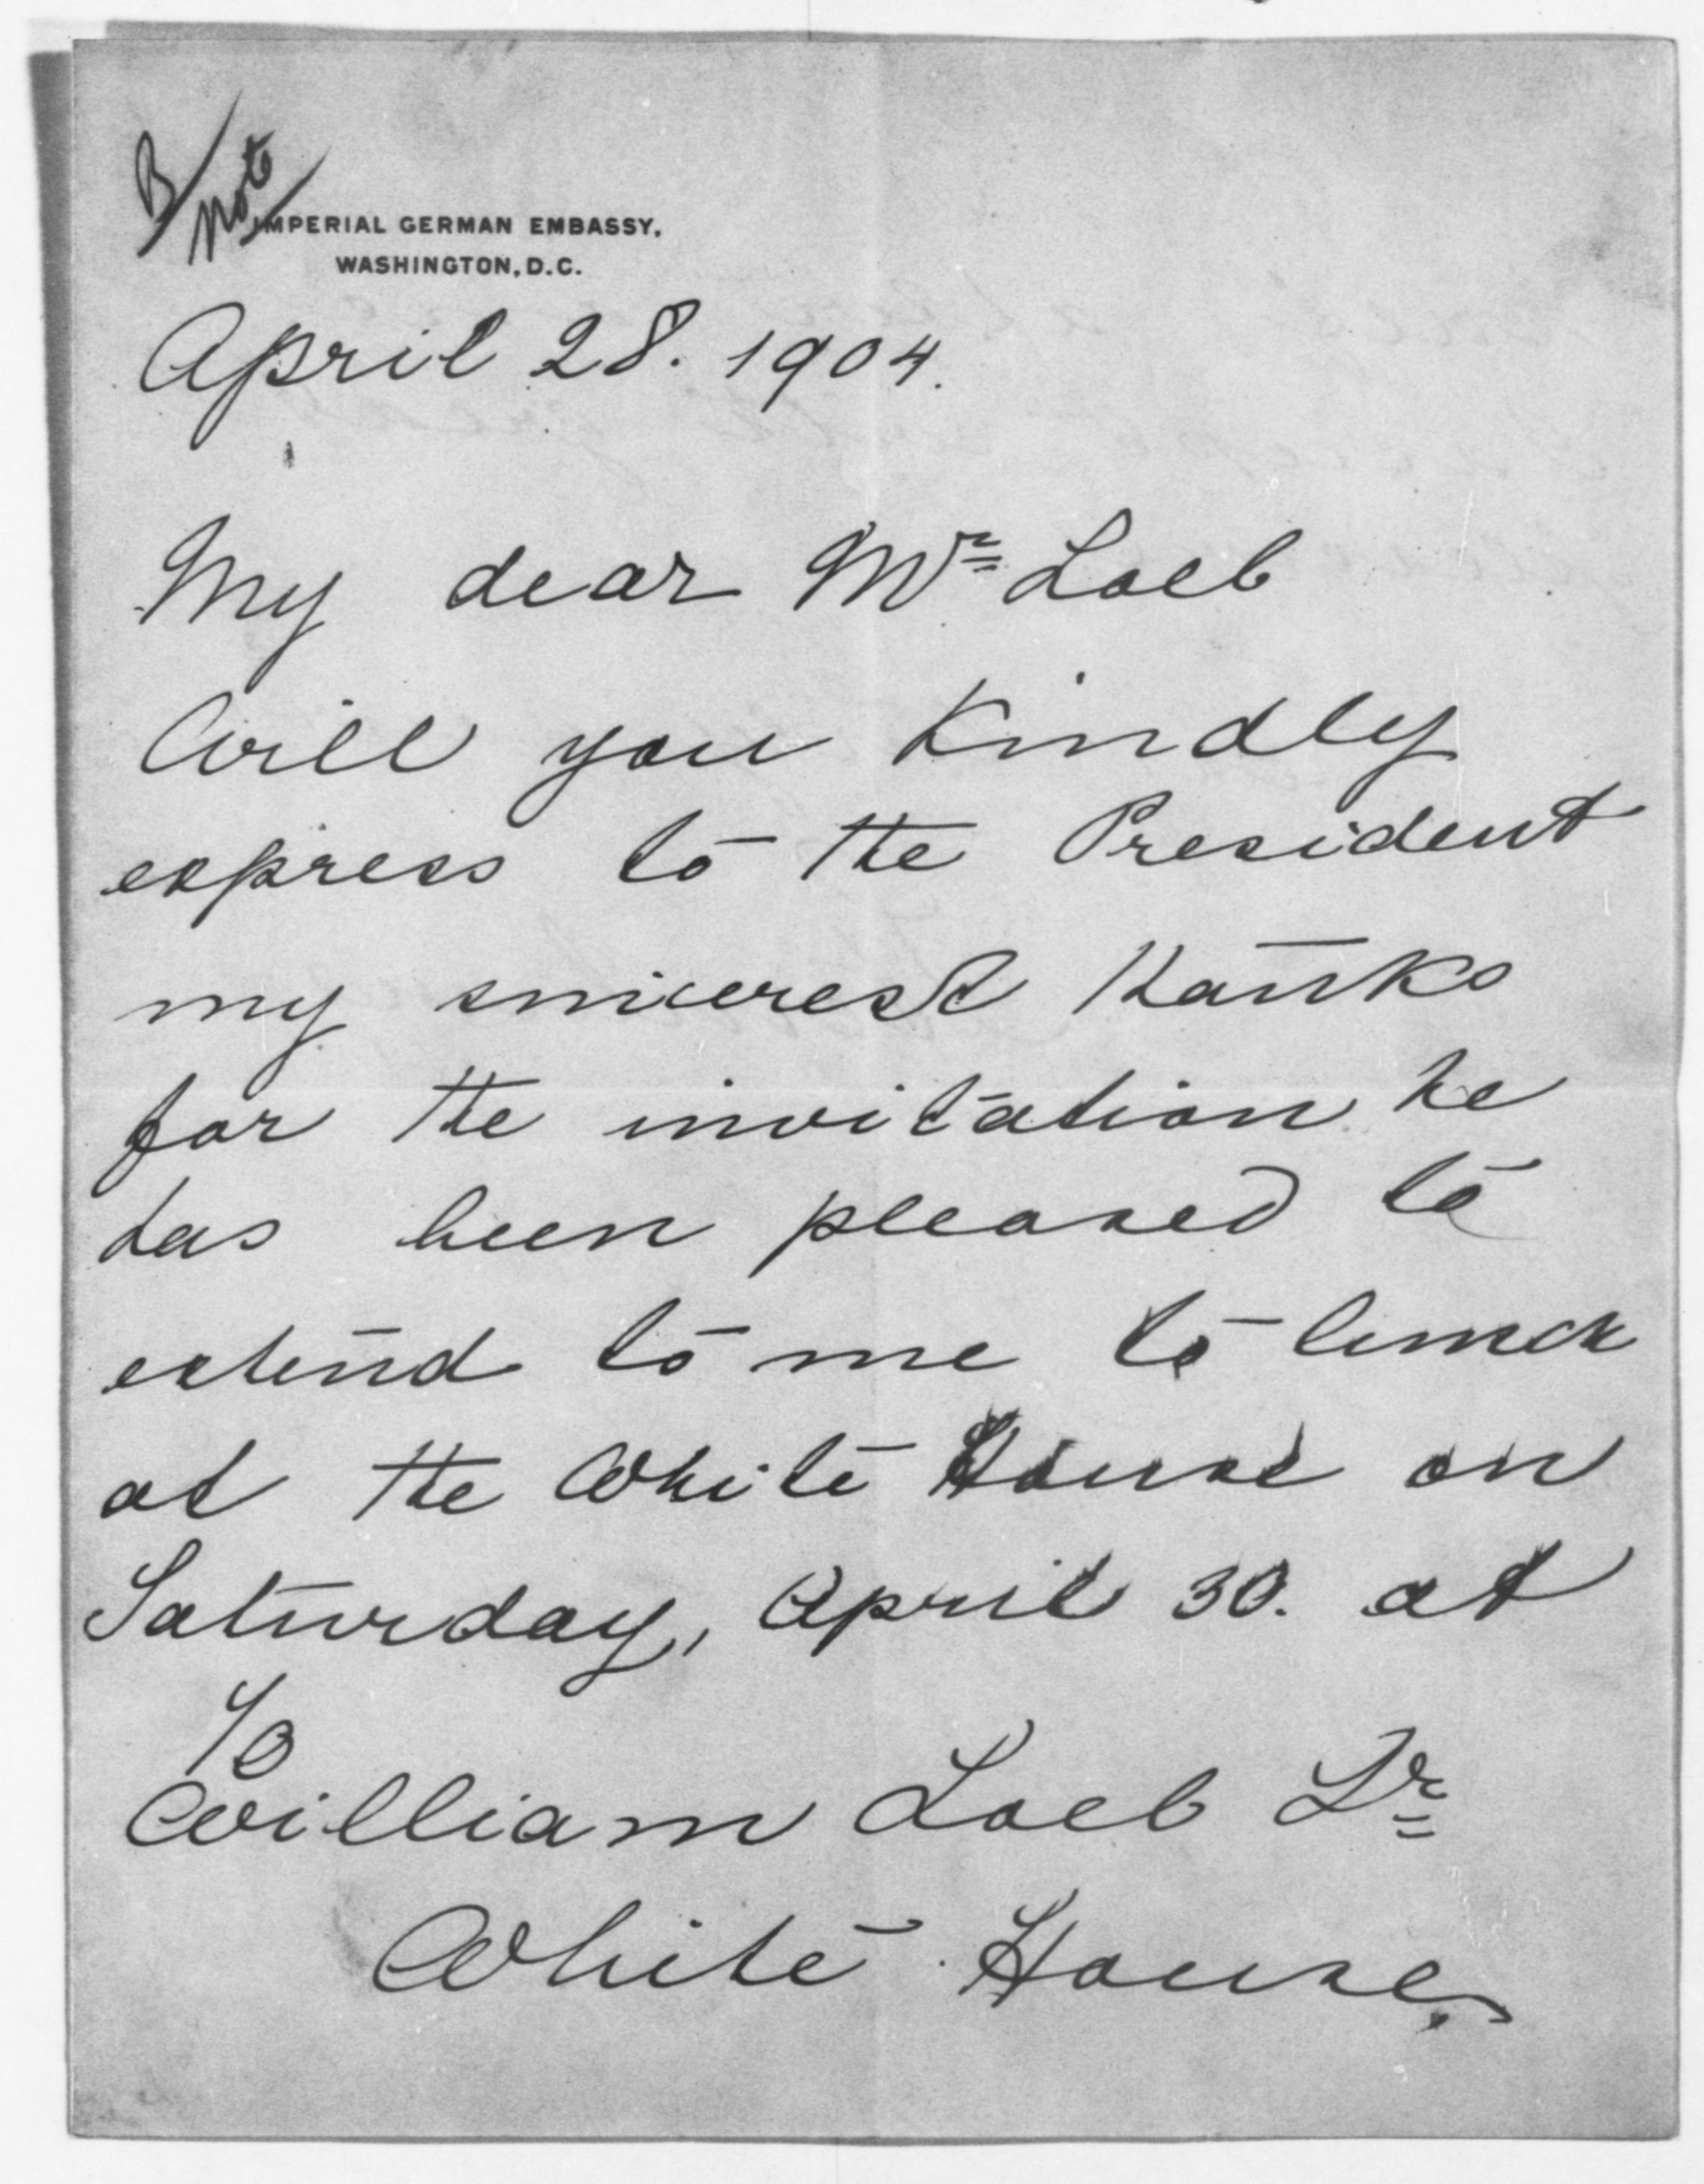 B
Note
IMPERIAL GERMAN EMBASSY,
WASHINGTON, D.C.
April 28. 1904.
My dear Mr Loeb
Will you kindly
express to the President
my sincerest thanks
for the invitation he
has been pleased to
extend to me to lunch
at the White House on
Saturday, April 30. at
To
William Loeb Jr
White House.